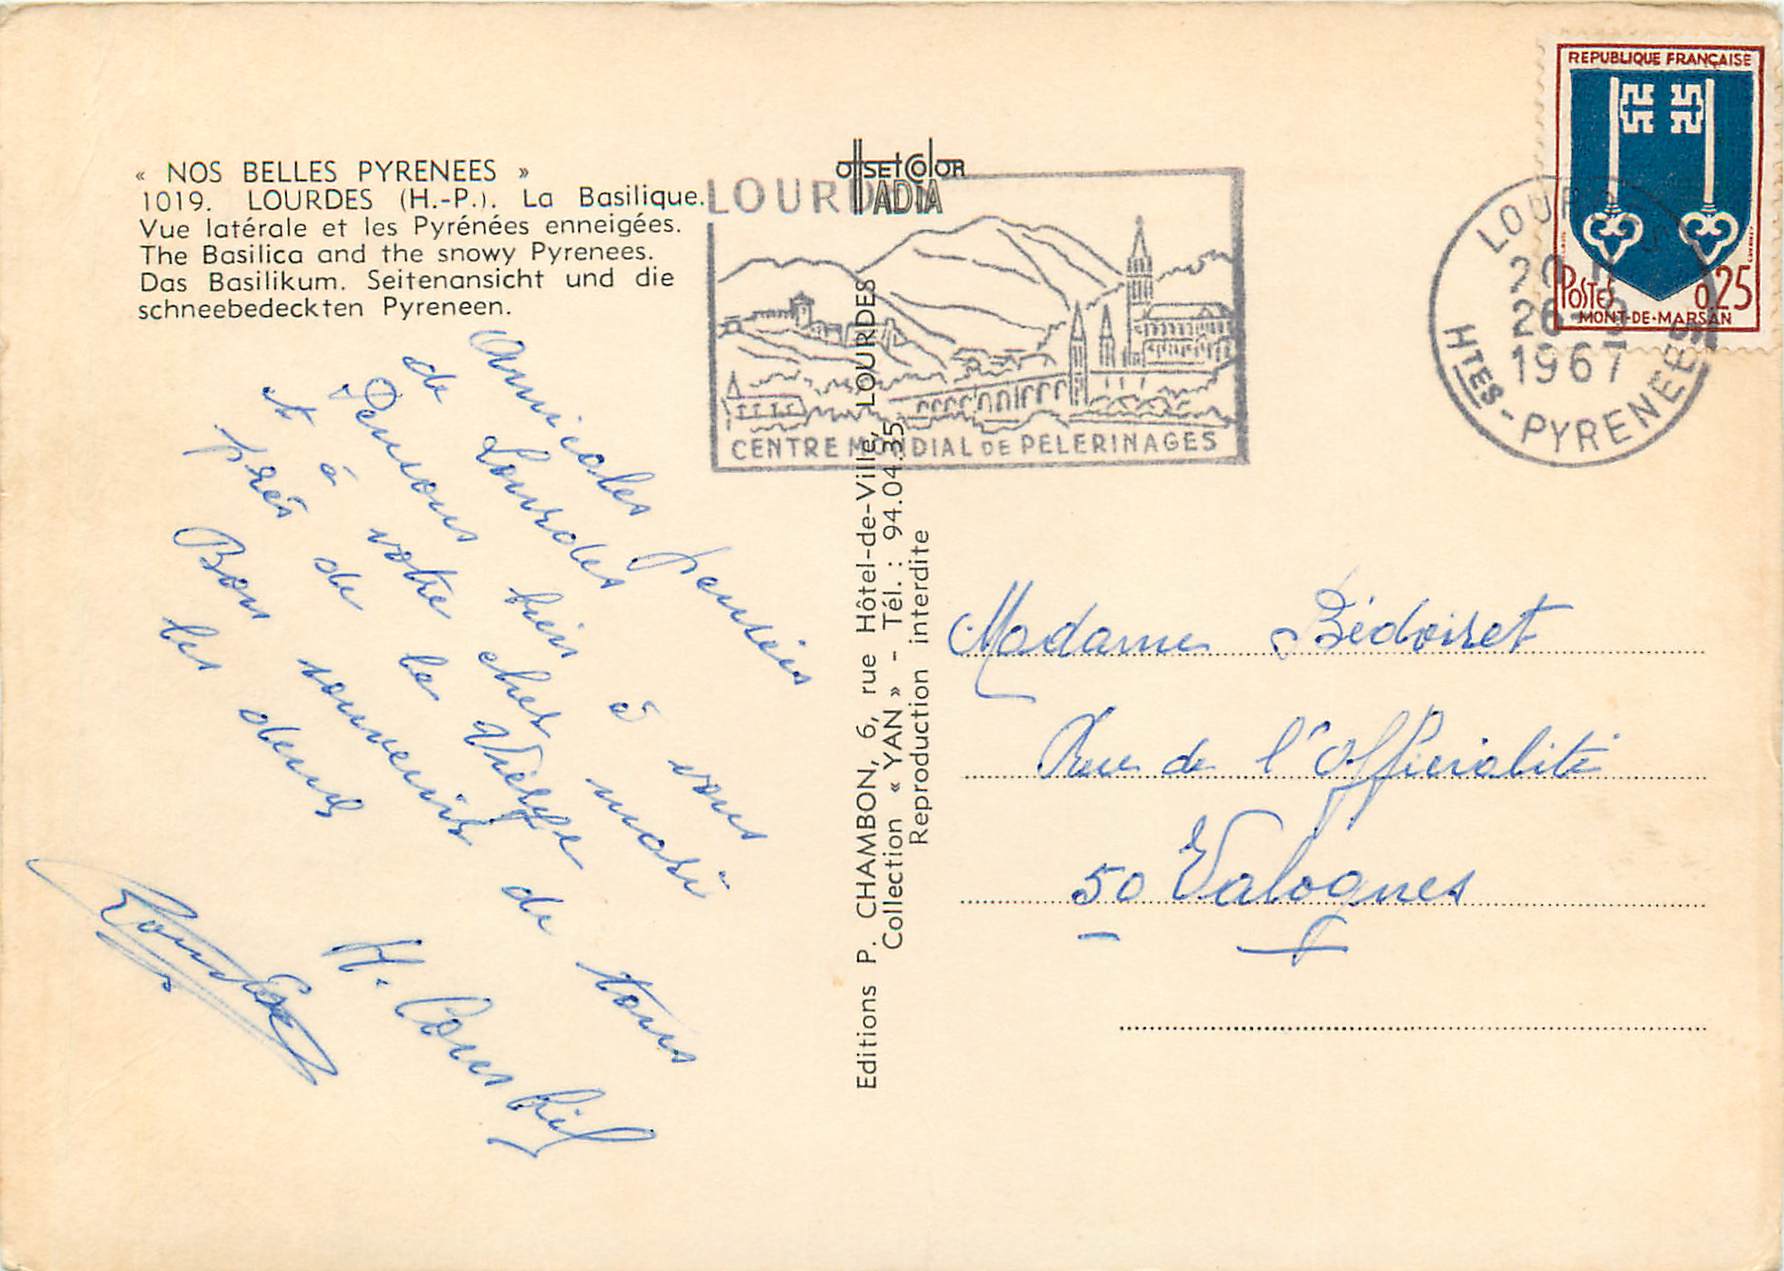 « NOS BELLES PYRENEES »
1019. LOURDES (H.-P.). La Basilique.
Vue latérale et les Pyrénées enneigées.
The Basilica and the snowy Pyrenees.
Das Basilikum. Seitenansicht und die
schneebedeckten Pyreneen.
Amicales pensées
de Lourdes
Pensons bien à vous
et à votre cher mari
près de la Vierge
Bons souvenirs de tous
les deux
H.
offset color
IADIA
LOURDES
CENTRE MONDIAL DE PELERINAGES
Editions P. CHAMBON, 6, rue Hôtel-de-Ville, LOURDES
Collection « YAN » - Tél. : 94.04.35
Reproduction interdite
REPUBLIQUE FRANÇAISE
POSTES 0,25
MONT-DE-MARSAN
LOURDES
20 H
26-9
1967
HTES-PYRENEES
Madame Bédoiset
Rue de l'Officialité
50 Valognes